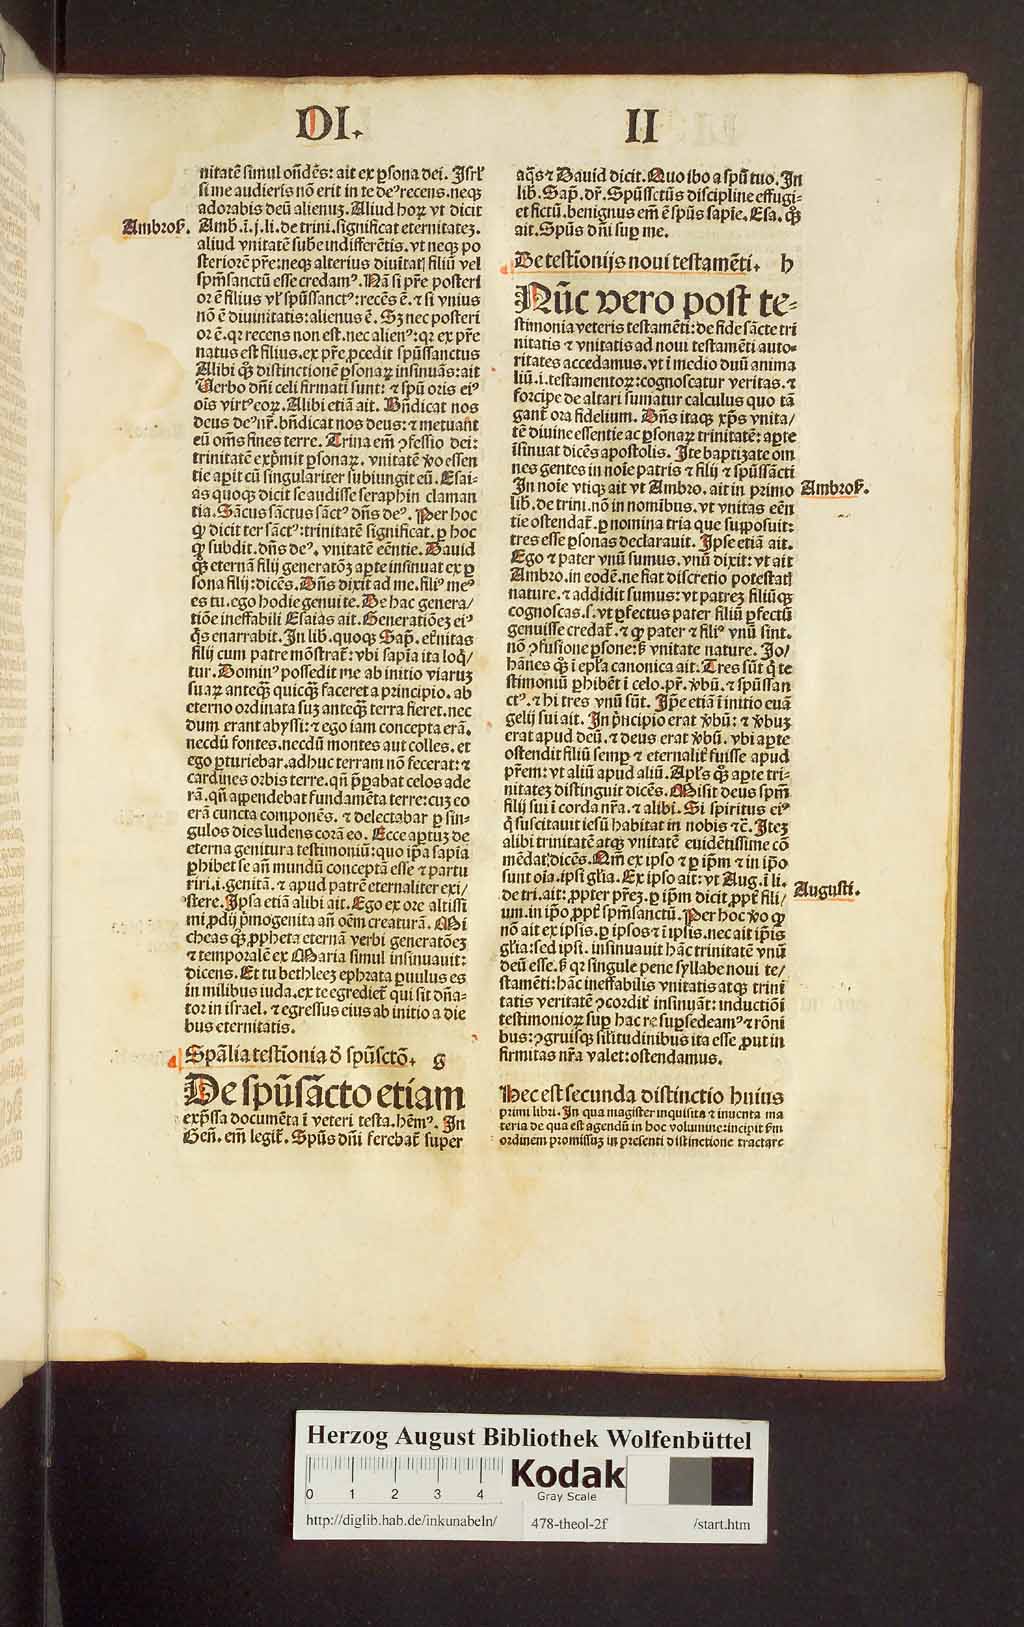 DI. II
nitatē simul oñdēs: ait ex ꝑsona dei. Isrł
si me audieris nō erit in te deꝰ recens. neqꝫ
adorabis deū alienuꝫ. Aliud hoꝝ vt dicit
Ambroẜ.
Amb̄. ī. j. li. de trini. significat eternitateꝫ.
aliud vnitatē sub̄e indifferētis. vt neqꝫ po
steriorē pr̄e: neqꝫ alterius diuītatꝭ filiū vel
spm̄sanctū esse credamꝰ. Nā si pr̄e posteri
or ē filius vł spūssanctꝰ: recēs ē. ⁊ si vnius
nō ē diuinitatis: alienus ē. Sꝫ nec posteri
or ē. qꝛ recens non est. nec alienꝰ: qꝛ ex pr̄e
natus est filius. ex pr̄e ꝓcedit spūssanctus
Alibi qꝫ distinctionē ꝑsonaꝝ insinuās: ait
Verbo dn̄i celi firmati sunt: ⁊ spū oris eiꝰ
oīs virtꝰ eoꝝ. Alibi etiā ait. Bn̄dicat nos
deus deꝰ nr̄. bn̄dicat nos deus: ⁊ metuāt
eū om̄s fines terre. Trina em̄ ꝯfessio dei:
trinitatē exp̄mit ꝑsonaꝝ. vnitatē v̄o essen
tie aꝑit cū singulariter subiungit eū. Esai-
as quoqꝫ dicit se audisse seraphin claman
tia. Sāctus sāctus sāctꝰ dn̄s deꝰ. Per hoc
ꝙ dicit ter sāctꝰ: trinitatē significat. ꝑ hoc
ꝙ subdit. dn̄s deꝰ. vnitatē eēntie. Dauid
qꝫ eternā filij generatōꝫ aꝑte insinuat ex ꝑ
sona filij: dicēs. Dn̄s dixit ad me. filiꝰ meꝰ
es tu. ego hodie genui te. De hac genera/
tiōe ineffabili Esaias ait. Generatiōeꝫ eiꝰ
q̄s enarrabit. In lib. quoqꝫ Sap̄. et̄nitas
filij cum patre mōstrat̄: vbi sapīa ita loq̄/
tur. Dominꝰ possedit me ab initio viaruꝫ
suaꝝ anteqꝫ quicqꝫ faceret a principio. ab
eterno ordinata suꝫ anteqꝫ terra fieret. nec
dum erant abyssi: ⁊ ego iam concepta erā.
necdū fontes. necdū montes aut colles. et
ego ꝑturiebar. adhuc terram nō fecerat: ⁊
cardines orbis terre. qn̄ p̄ꝑabat celos ade
rā. qn̄ appendebat fundamēta terre: cuꝫ eo
erā cuncta componēs. ⁊ delectabar ꝑ sin-
gulos dies ludens corā eo. Ecce aꝑtuꝫ de
eterna genitura testimoniū: quo ip̄a sapīa
ꝑhibet se an̄ mundū conceptā esse ⁊ partu
riri. i. genitā. ⁊ apud patrē eternaliter exi/
stere. Ipsa etiā alibi ait. Ego ex ore altissi
mi ꝓdij p̄mogenita an̄ oēm creaturā. Mi
cheas qꝫ ꝓpheta eternā verbi generatōeꝫ
⁊ temporalē ex Maria simul insinuauit:
dicens. Et tu bethleeꝫ ephrata ꝑuulus es
in milibus iuda. ex te egrediet̄ qui sit dn̄a-
tor in israel. ⁊ egressus eius ab initio a die
bus eternitatis.
Spāłia testiōnia d̄ spūsctō. g
De spūsācto etiam
exp̄ssa documēta ī veteri testa. hēmꝰ. In
Gen̄. em̄ legit̄. Spūs dn̄i ferebat̄ super
aq̄s ⁊ Dauid dicit. Quo ibo a spū tuo. In
lib. Sap̄. dr̄. Spūssctūs discipline effugi-
et fictū. benignus em̄ ē spūs sapīe. Esa. qꝫ
ait. Spūs dn̄i suꝑ me.
De testiōnijs noui testamēti. h
Nūc vero post te-
stimonia veteris testamēti: de fide sācte tri
nitatis ⁊ vnitatis ad noui testamēti auto-
ritates accedamus. vt ī medio duū anima
liū. i. testamentoꝝ: cognoscatur veritas. ⁊
forcipe de altari sumatur calculus quo tā
gant̄ ora fidelium. Dn̄s itaqꝫ xp̄s vnita/
tē diuine essentie ac ꝑsonaꝝ trinitatē: aꝑte
īsinuat dicēs apostolis. Ite baptizate om
nes gentes in noīe patris ⁊ filij ⁊ spūssācti
In noīe vtiqꝫ ait vt Ambro. ait in primo
Ambroẜ.
lib. de trini. nō in nomībus. vt vnitas eēn
tie ostendat̄. ꝑ nomina tria que supposuit:
tres esse ꝑsonas declarauit. Ipse etiā ait.
Ego ⁊ pater vnū sumus. vnū dixit: vt ait
Ambro. in eodē. ne fiat discretio potestatꝭ
nature. ⁊ addidit sumus: vt patreꝫ filiūqꝫ
cognoscas. s. vt ꝑfectus pater filiū ꝑfectū
genuisse credat̄. ⁊ ꝙ pater ⁊ filiꝰ vnū sint.
nō ꝯfusione ꝑsone: ß vnitate nature. Jo/
hānes qꝫ ī epl̄a canonica ait. Tres sūt q̄ te
stimoniū ꝑhibēt ī celo. pr̄. v̄bū. ⁊ spūssan
ctꝰ. ⁊ hi tres vnū sūt. Ip̄e etiā ī initio euā
gelij sui ait. In p̄ncipio erat v̄bū: ⁊ v̄buꝫ
erat apud deū. ⁊ deus erat v̄bū. vbi aꝑte
ostendit filiū semꝑ ⁊ eternalit̄ fuisse apud
pr̄em: vt aliū apud aliū. Apl̄s qꝫ aꝑte tri-
nitateꝫ distinguit dicēs. Misit deus spm̄
filij sui ī corda nr̄a. ⁊ alibi. Si spiritus eiꝰ
q̄ suscitauit iesū habitat in nobis ⁊c̄. Iteꝫ
alibi trinitatē atqꝫ vnitatē euidētissime cō
mēdat dicēs. Qm̄ ex ipso ⁊ ꝑ ip̄m ⁊ in ip̄o
sunt oīa. ipsi gl̄ia. Ex ipso ait: vt Aug. ī li.
Augusti.
de tri. ait: ꝓpter pr̄eꝫ. ꝑ ip̄m dicit ꝓpt̄ fili/
um. in ip̄o ꝓpt̄ spm̄sanctū. Per hoc v̄o ꝙ
nō ait ex ipsis. ꝑ ipsos ⁊ ī ipsis. nec ait ip̄is
gl̄ia: sed ipsi. insinuauit hāc trinitatē vnū
deū esse. ß qꝛ singule pene syllabe noui te/
stamēti: hāc ineffabilis vnitatis atqꝫ trini
tatis veritatē ꝯcordit̄ insinuāt: inductiōi
testimonioꝝ suꝑ hac re suꝑsedeamꝰ ⁊ rōni
bus: ꝯgruisqꝫ sil̄itudinibus ita esse ꝓut in
firmitas nr̄a valet: ostendamus.
Hec est secunda distinctio huius
primi libri. In qua magister inquisita ⁊ inuenta ma
teria de qua est agendū in hoc volumine: incipit ẜm
ordinem promissuꝫ in presenti distinctione tractare
Herzog August Bibliothek Wolfenbüttel
0 1 2 3 4
Kodak
Gray Scale
http://diglib.hab.de/inkunabeln/ 478-theol-2f /start.htm